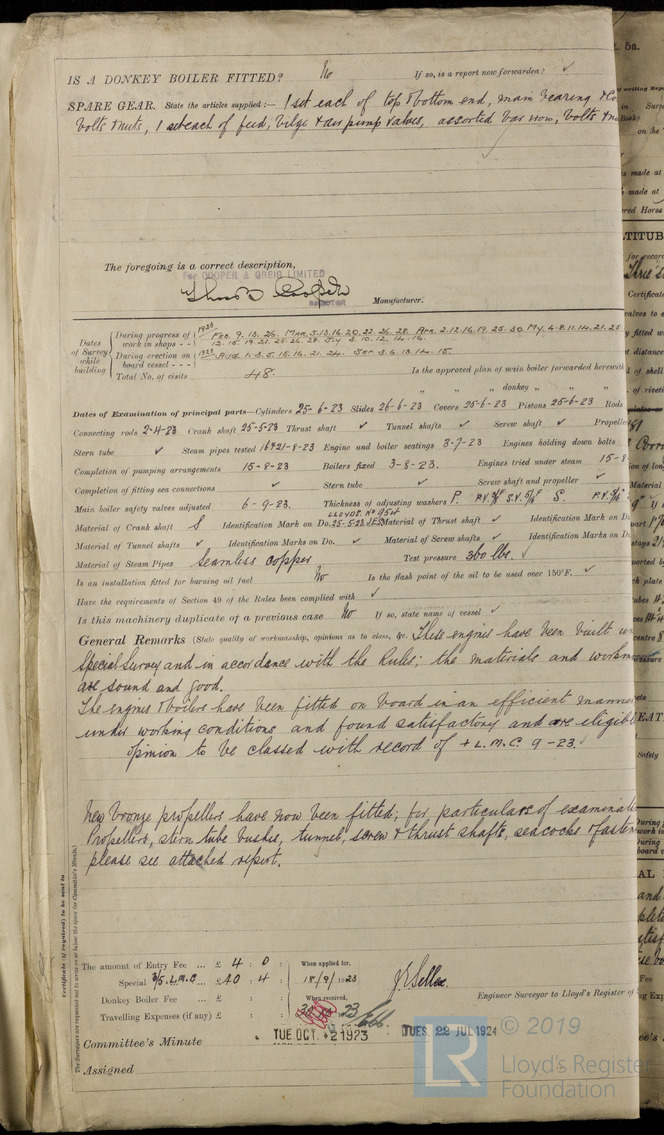 IS A DONKEY BOILER FITTED? No If so, is a report now forwarded? ✓
SPARE GEAR. State the articles supplied:— 1 set each of top & bottom end, main bearing & Co
bolts & nuts, 1 set each of feed, bilge & air pump valves, assorted bar iron, bolts & nu
The foregoing is a correct description,
For COOPER & GREIG LIMITED
Manufacturer.
Dates of Survey while building
During progress of work in shops - - 1923 Feb. 9. 13. 26. Mar. 5. 13. 16. 20. 22. 26. 28. Apr. 2. 12. 16. 19. 25. 30. My. 4. 8. 11. 14. 21. 25
12. 15. 19. 21. 25. 26. 28. Jly 3. 10. 12. 14. 16.
During erection on board vessel - - - 1923 Aug. 1. 3. 5. 15. 16. 21. 24. Sep. 3. 6. 13. 14. 15.
Total No. of visits 48. Is the approved plan of main boiler forwarded herewith
" " donkey " " "
Dates of Examination of principal parts—Cylinders 25-6-23 Slides 26-6-23 Covers 25-6-23 Pistons 25-6-23 Rods
Connecting rods 2-4-23 Crank shaft 25-5-23 Thrust shaft ✓ Tunnel shafts ✓ Screw shaft ✓ Propelle
Stern tube ✓ Steam pipes tested 16 & 21-8-23 Engine and boiler seatings 3-7-23 Engines holding down bolts
Completion of pumping arrangements 15-8-23 Boilers fixed 3-8-23. Engines tried under steam 15-8-
Completion of fitting sea connections ✓ Stern tube ✓ Screw shaft and propeller ✓
Main boiler safety valves adjusted 6-9-23. Thickness of adjusting washers P.
Material of Crank shaft S Identification Mark on Do. LLOYDS. No 9514 25-5-23 JES Material of Thrust shaft ✓ Identification Mark on Do
Material of Tunnel shafts ✓ Identification Marks on Do. ✓ Material of Screw shafts ✓ Identification Marks on Do
Material of Steam Pipes Seamless copper Test pressure 360 lbs.
Is an installation fitted for burning oil fuel No Is the flash point of the oil to be used over 150°F. ✓
Have the requirements of Section 49 of the Rules been complied with ✓
Is this machinery duplicate of a previous case No If so, state name of vessel ✓
General Remarks (State quality of workmanship, opinions as to class, &c. These engines have been built un
Special Survey and in accordance with the Rules; the materials and workman
are sound and good.
The engines & boilers have been fitted on board in an efficient manner
under working conditions and found satisfactory and are eligible
opinion to be classed with record of + L.M.C. 9-23.
New bronze propellers have now been fitted, for particulars of examinati
Propellers, stern tube bushes, tunnel, screw & thrust shafts, seacocks & faste
please see attached report.
Certificate (if required) to be sent to
The Surveyors are requested not to write on or below the space for Committee's Minute.
The amount of Entry Fee ... £ 4 : 0 : When applied for,
Special 3/5 L.M.C. ... £ 40 : 4 : 18/9/1923
Donkey Boiler Fee ... £ : : When received,
Travelling Expenses (if any) £ : : 23
Engineer Surveyor to Lloyd's Register of
Committee's Minute TUE. OCT. 2 1923 TUES. 22 JUL 1924
Assigned
© 2019
LR
Lloyd's Register
Foundation